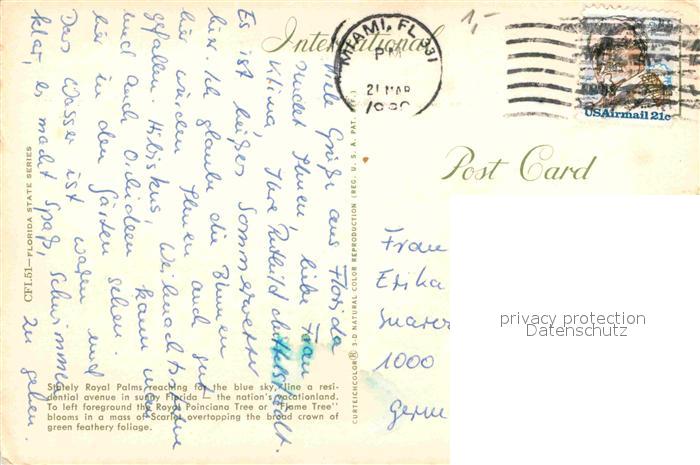 International
Post Card
MIAMI, FL 331
PM
21 MAR
USAirmail 21c
1,-
Viele Grüße aus Florida
sendet Ihnen, liebe Frau
Klima, Ihre
Es ist heißes Sommerwetter
hier. Ich glaube die Blumen
hier würden Ihnen auch gut
gefallen. Hibiskus, Weihnachtssterne
und auch Orchideen kann man
hier in den Gärten sehen.
Das Wasser ist warm und
klar, es macht Spaß, Schwimmen
zu gehen.
Frau
Erika
1000
Germ
privacy protection
Datenschutz
CFL51—FLORIDA STATE SERIES
CURTEICHCOLOR® 3-D NATURAL COLOR REPRODUCTION (REG. U. S. A. PAT. OFF.)
Stately Royal Palms, reaching for the blue sky, line a resi-
dential avenue in sunny Florida — the nation's vacationland.
To left foreground the Royal Poinciana Tree or "Flame Tree"
blooms in a mass of Scarlet overtopping the broad crown of
green feathery foliage.